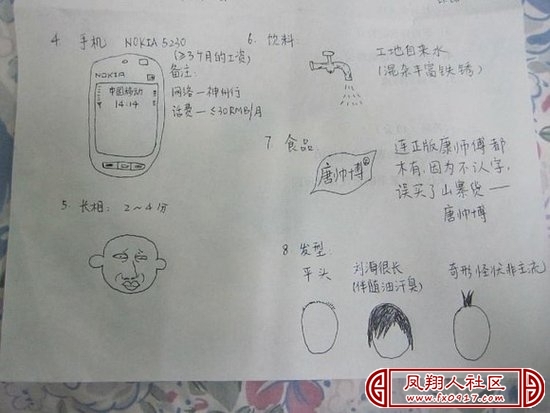 4. 手机 NOKIA 5230
(≥3个月的工资)
备注:
网络—神州行
话费—≤30RMB/月
NOKIA
中国移动
14:14
5. 长相: 2~4分
6. 饮料
工地自来水
(混杂丰富铁锈)
7. 食品:
唐帅博®
连正版康师傅都
木有,因为不认字,
误买了山寨货——
唐帅博
8. 发型
平头
刘海很长
(伴随油汗臭)
奇形怪状非主流
凤翔人社区
www.fx0417.com